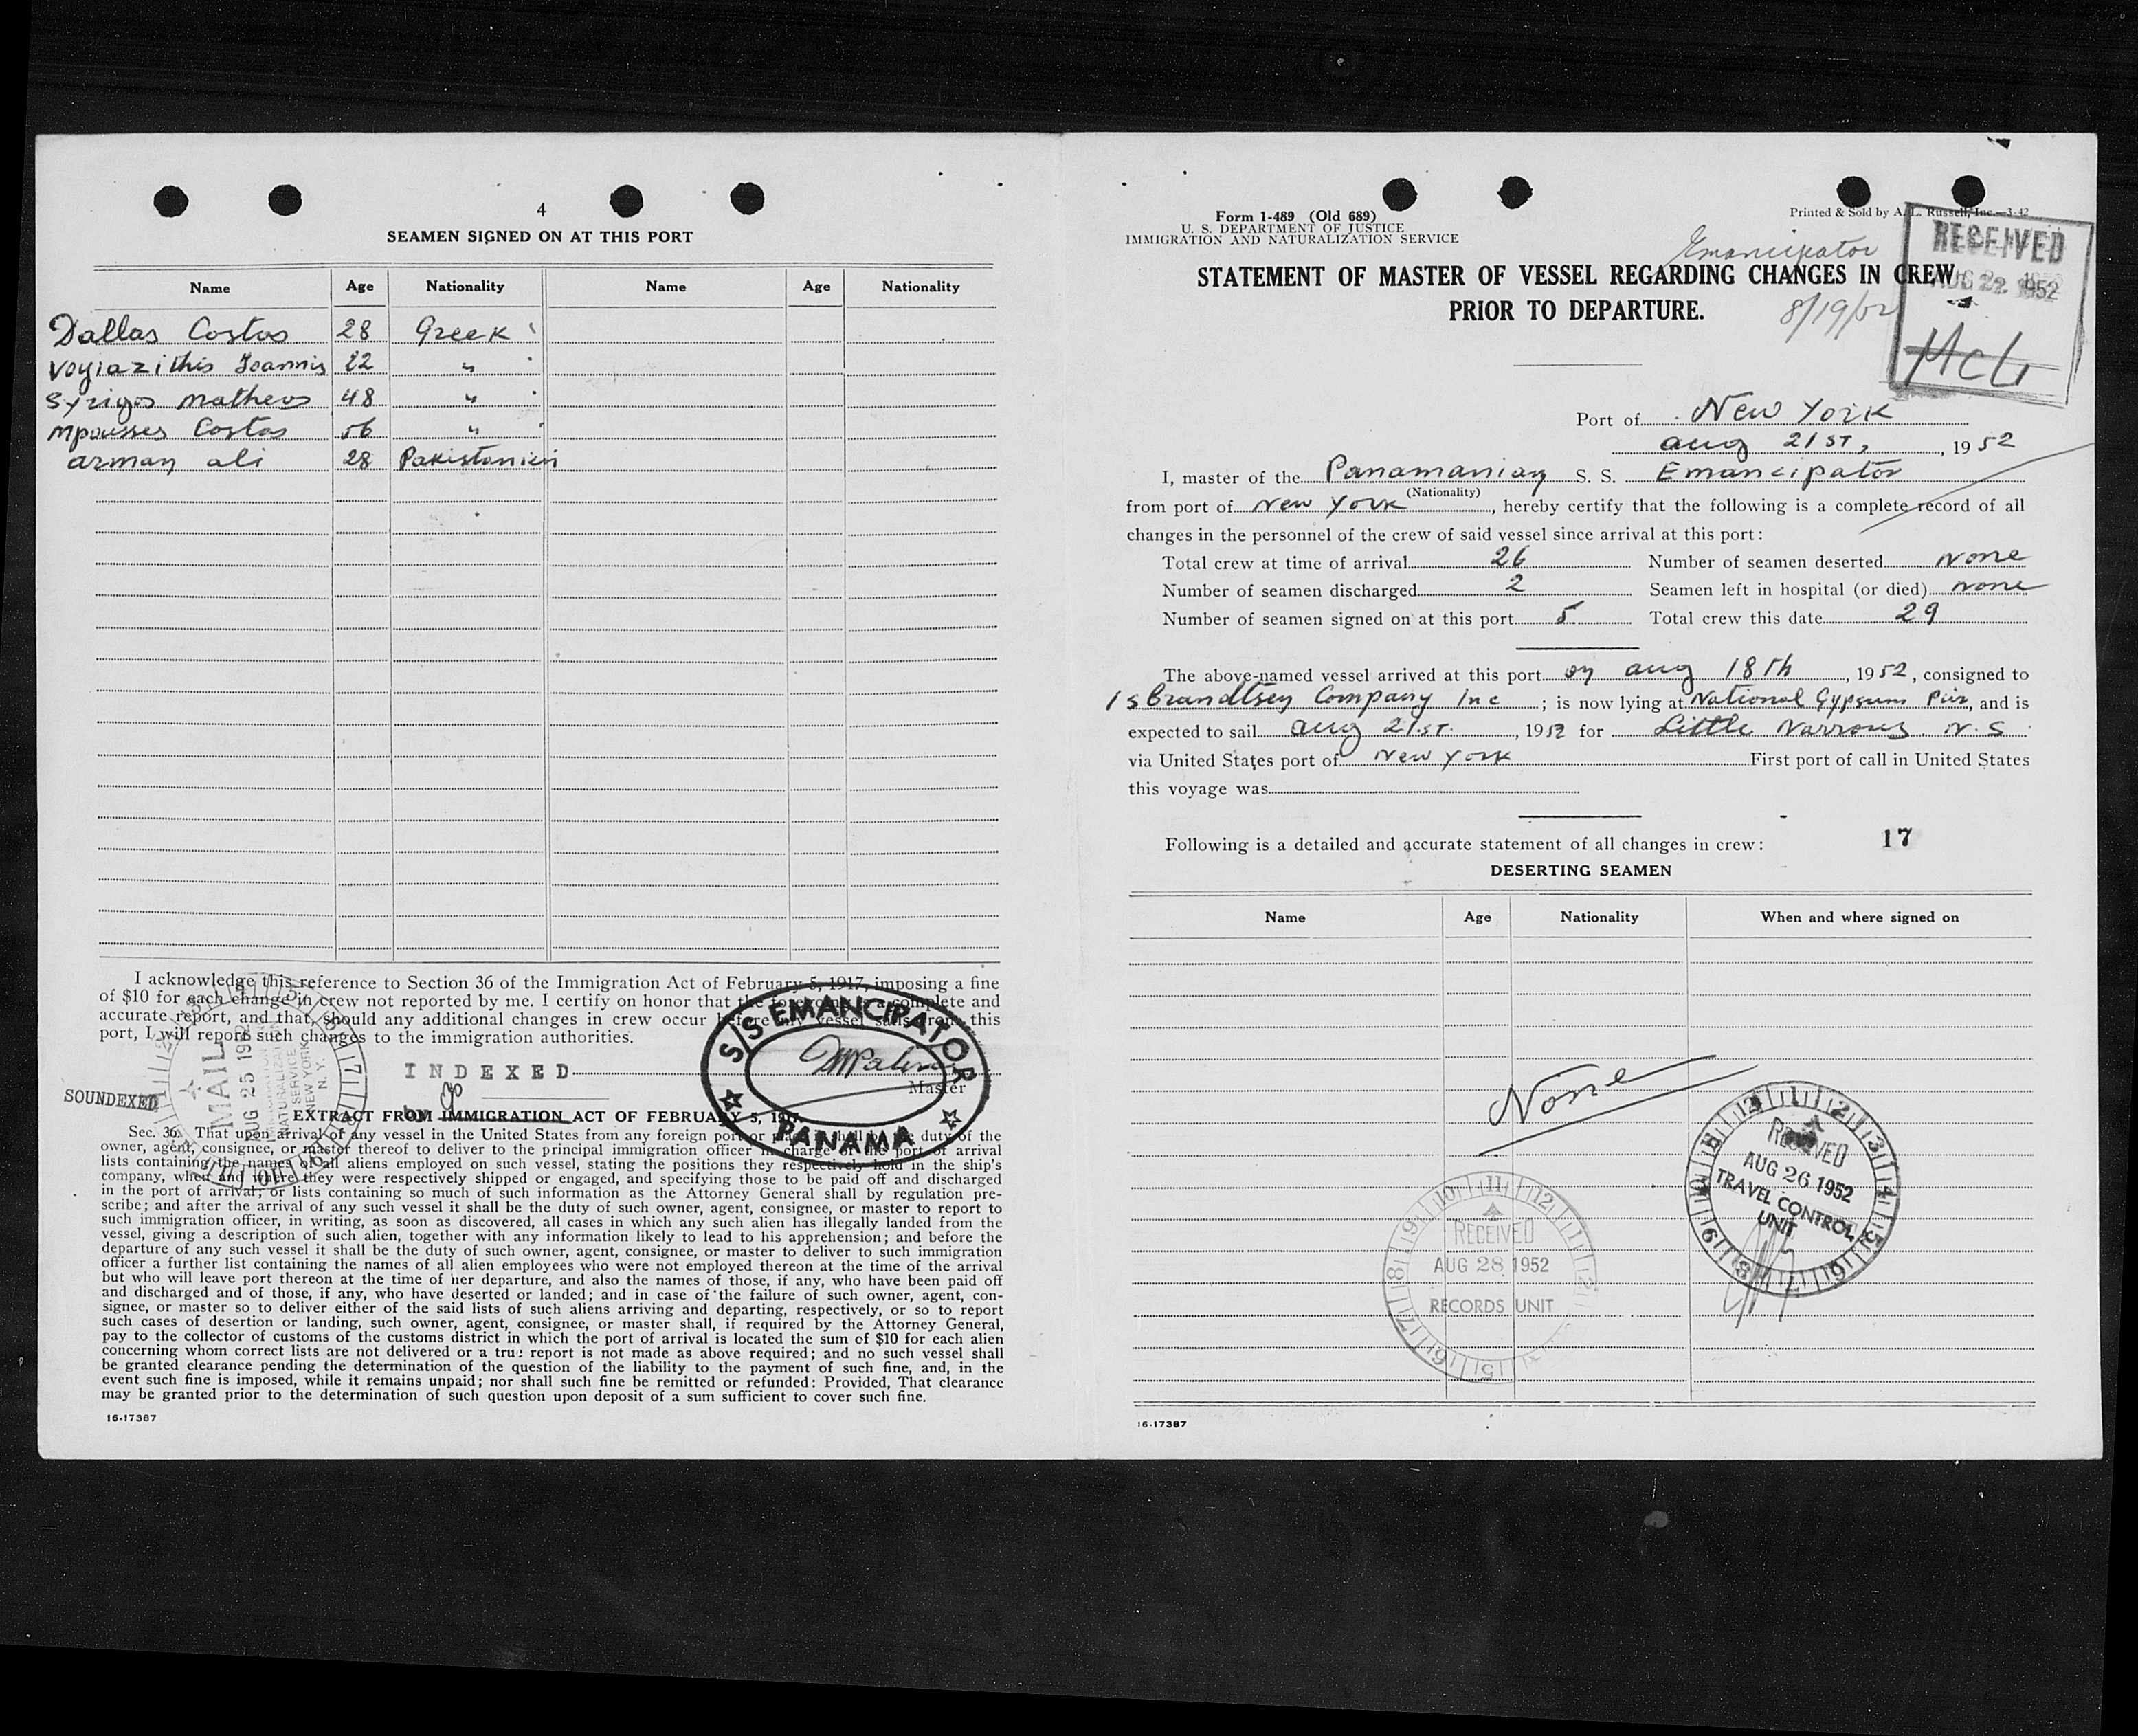 4
SEAMEN SIGNED ON AT THIS PORT
Name Age Nationality Name Age Nationality
Dallas Costas 28 Greek
Voyiazithis Ioannis 22 "
Syrigos Matheos 48 "
Mpousses Costas 56 "
arman ali 28 Pakistanien
I acknowledge this reference to Section 36 of the Immigration Act of February 5, 1917, imposing a fine
of $10 for each change in crew not reported by me. I certify on honor that the foregoing is a complete and
accurate report, and that, should any additional changes in crew occur before my vessel sails from this
port, I will report such changes to the immigration authorities.
S/S EMANCIPATOR
PANAMA
Master
INDEXED
SOUNDEXED
MAIL
AUG 25 1952
NATURALIZATION
SERVICE
NEW YORK
N. Y.
EXTRACT FROM IMMIGRATION ACT OF FEBRUARY 5, 1917
Sec. 36. That upon arrival of any vessel in the United States from any foreign port or place it shall be the duty of the
owner, agent, consignee, or master thereof to deliver to the principal immigration officer in charge of the port of arrival
lists containing the names of all aliens employed on such vessel, stating the positions they respectively hold in the ship's
company, when and where they were respectively shipped or engaged, and specifying those to be paid off and discharged
in the port of arrival; or lists containing so much of such information as the Attorney General shall by regulation pre-
scribe; and after the arrival of any such vessel it shall be the duty of such owner, agent, consignee, or master to report to
such immigration officer, in writing, as soon as discovered, all cases in which any such alien has illegally landed from the
vessel, giving a description of such alien, together with any information likely to lead to his apprehension; and before the
departure of any such vessel it shall be the duty of such owner, agent, consignee, or master to deliver to such immigration
officer a further list containing the names of all alien employees who were not employed thereon at the time of the arrival
but who will leave port thereon at the time of her departure, and also the names of those, if any, who have been paid off
and discharged and of those, if any, who have deserted or landed; and in case of the failure of such owner, agent, con-
signee, or master so to deliver either of the said lists of such aliens arriving and departing, respectively, or so to report
such cases of desertion or landing, such owner, agent, consignee, or master shall, if required by the Attorney General,
pay to the collector of customs of the customs district in which the port of arrival is located the sum of $10 for each alien
concerning whom correct lists are not delivered or a true report is not made as above required; and no such vessel shall
be granted clearance pending the determination of the question of the liability to the payment of such fine, and, in the
event such fine is imposed, while it remains unpaid; nor shall such fine be remitted or refunded: Provided, That clearance
may be granted prior to the determination of such question upon deposit of a sum sufficient to cover such fine.
16-17387
Form 1-489 (Old 689)
U. S. DEPARTMENT OF JUSTICE
IMMIGRATION AND NATURALIZATION SERVICE
Printed & Sold by A. L. Russell, Inc.—3-42
Emancipator
RECEIVED
AUG 22 1952
STATEMENT OF MASTER OF VESSEL REGARDING CHANGES IN CREW
PRIOR TO DEPARTURE.
8/19/52
Port of New York
aug 21ST, , 1952
I, master of the Panamanian S. S. Emancipator
(Nationality)
from port of New York, hereby certify that the following is a complete record of all
changes in the personnel of the crew of said vessel since arrival at this port:
Total crew at time of arrival 26 Number of seamen deserted none
Number of seamen discharged 2 Seamen left in hospital (or died) none
Number of seamen signed on at this port 5 Total crew this date 29
The above-named vessel arrived at this port on aug 18th, 1952, consigned to
Isbrandtsen Company Inc; is now lying at National Gypsum Pier, and is
expected to sail aug 21.ST., 1952 for Little Narrows. N. S
via United States port of New York First port of call in United States
this voyage was
Following is a detailed and accurate statement of all changes in crew: 17
DESERTING SEAMEN
Name Age Nationality When and where signed on
None
RECEIVED
AUG 26 1952
TRAVEL CONTROL
UNIT
RECEIVED
AUG 28 1952
RECORDS UNIT
16-17387